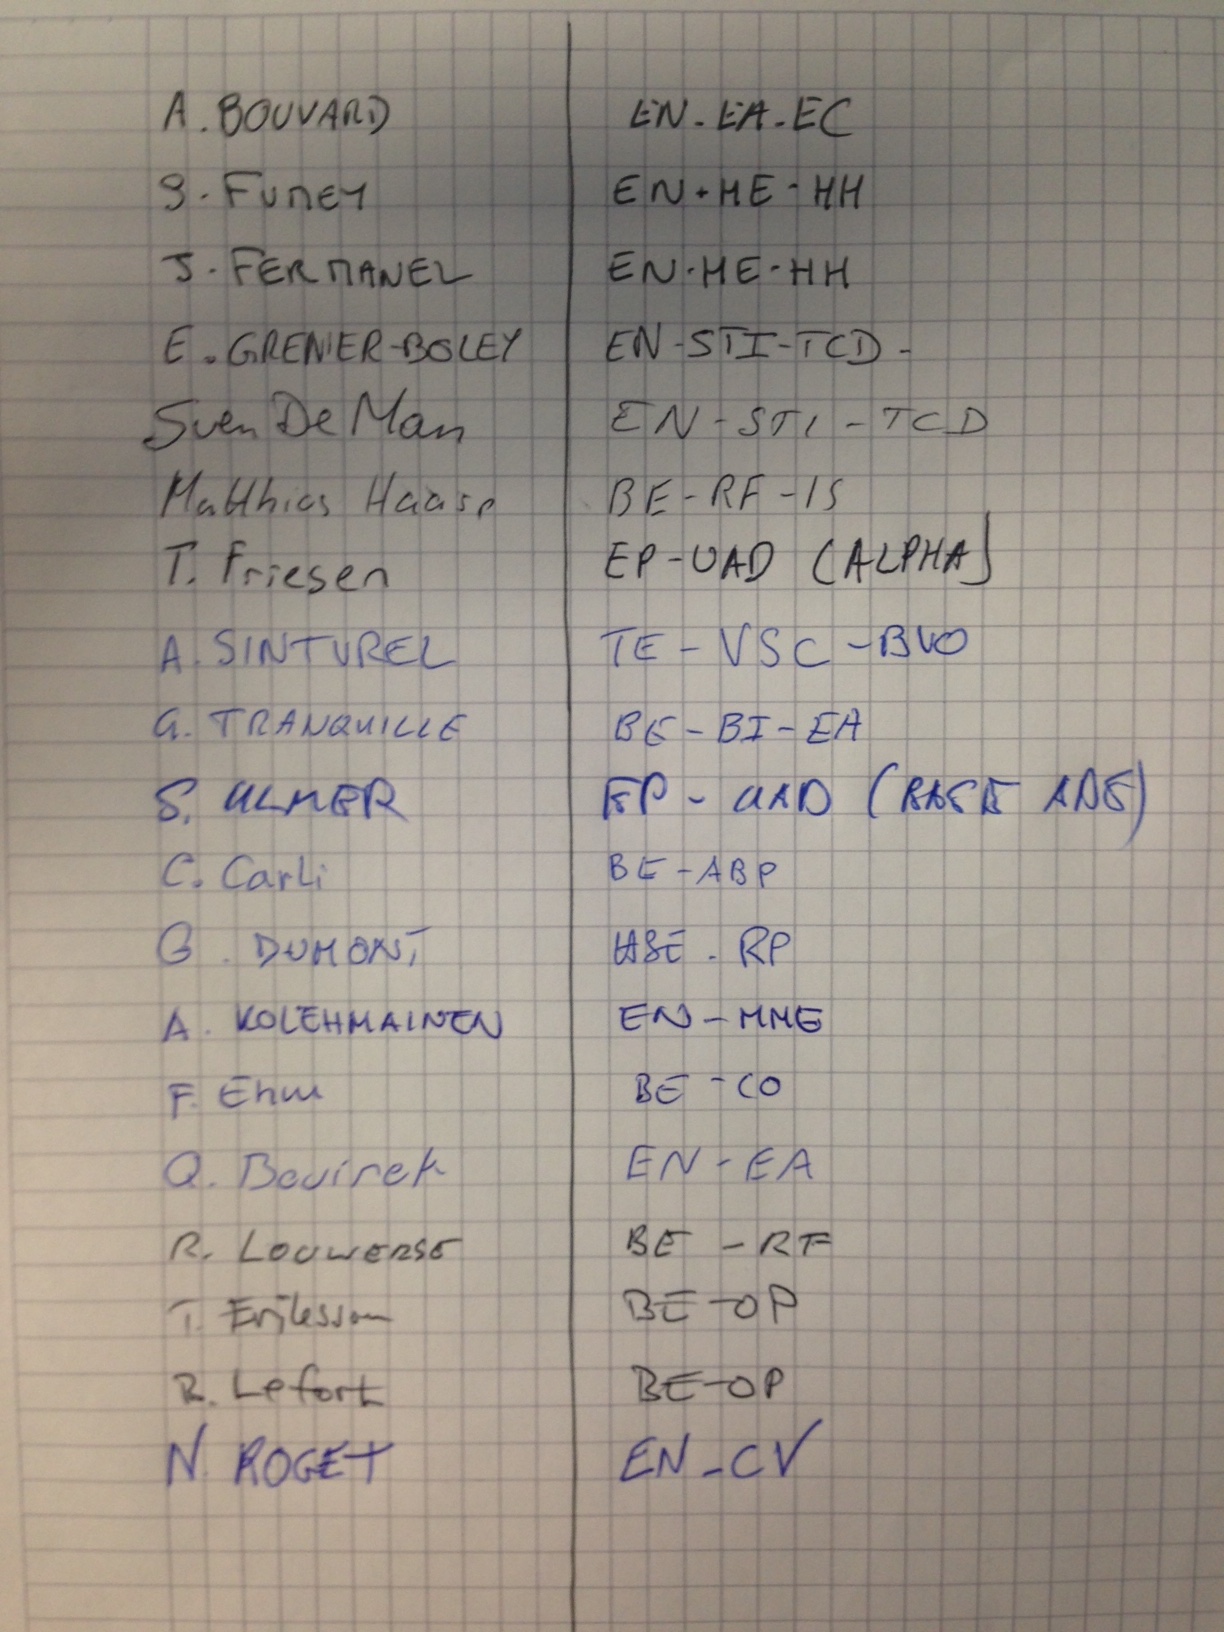 A. BOUVARD EN-EA-EC
S. Fumey EN-HE-HH
J. FERMANEL EN-HE-HH
E. GRENIER-BOLEY EN-STI-TCD -
Sven De Man EN-STI-TCD
Matthias Haase BE-RF-IS
T. Friesen EP-UAD (ALPHA)
A. SINTUREL TE-VSC-BVO
G. TRANQUILLE BE-BI-EA
S. ULMER EP-UAD (BASE ADE)
C. Carli BE-ABP
G. DUMONT HSE. RP
A. KOLEHMAINEN EN-MME
F. Ehm BE-CO
Q. EN-EA
R. LOUWERSE BE-RF
T. Eriksson BE-OP
R. Lefort BE-OP
N. ROGET EN-CV